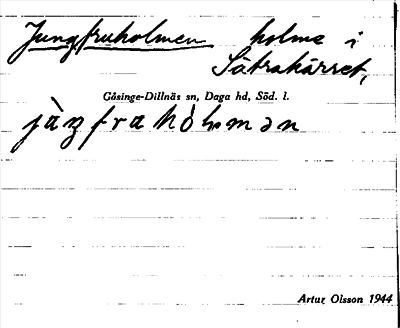 Jungfruholmen holme i
Sätrakärret,
Gåsinge-Dillnäs sn, Daga hd, Söd. l.
jàŋfrahòlmən
Artur Olsson 1944